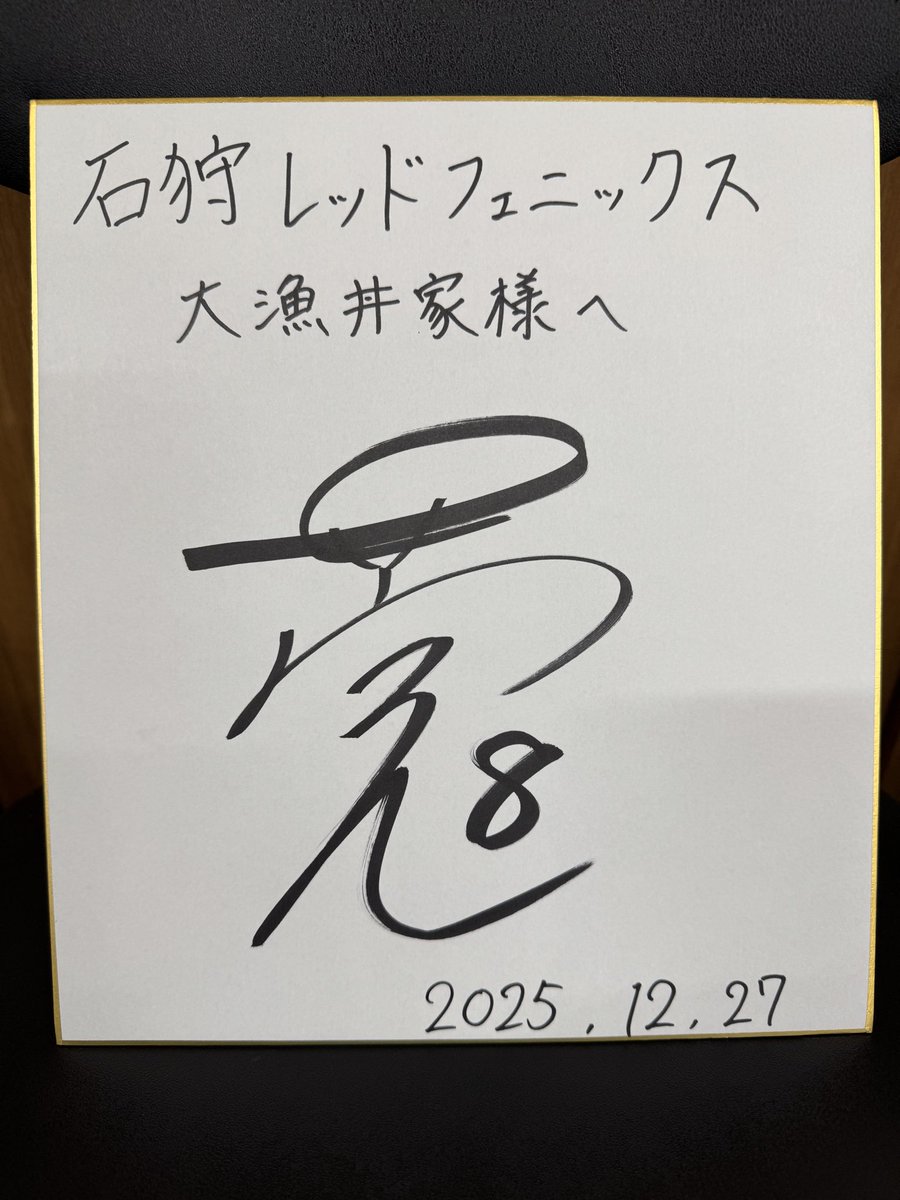 石狩レッドフェニックス
大漁丼家様へ
8
2025.12.27